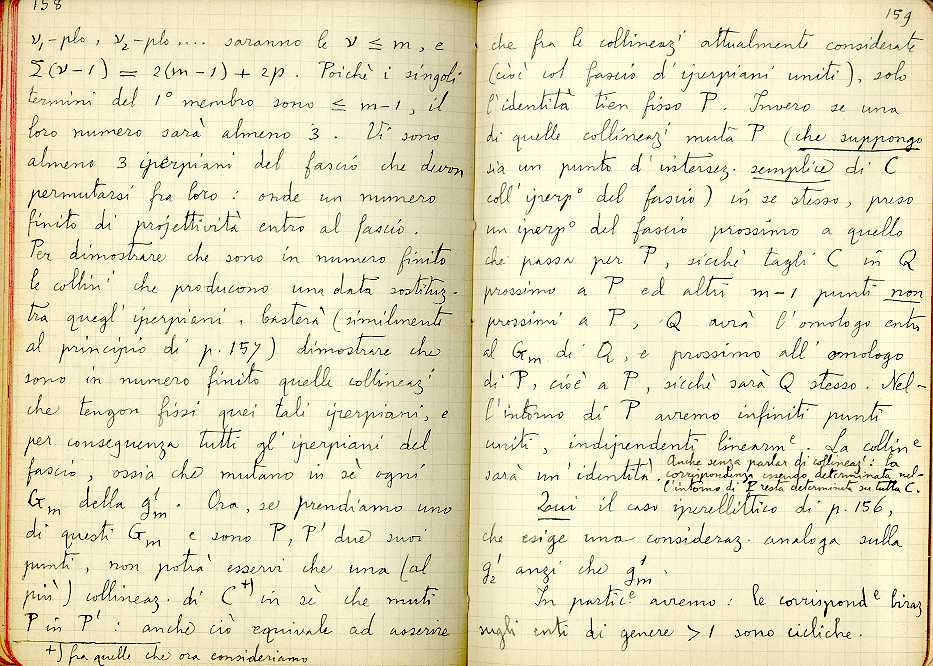 158
ν₁-plo, ν₂-plo,... saranno le ν ≤ m, e
Σ(ν-1) = 2(m-1) + 2p. Poichè i singoli
termini del 1° membro sono ≤ m-1, il
loro numero sarà almeno 3. Vi sono
almeno 3 iperpiani del fascio che devon
permutarsi fra loro: onde un numero
finito di projettività entro al fascio.
Per dimostrare che sono in numero finito
le collini che producono una data sostituz.
tra quegl' iperpiani, basterà (similmente
al principio di p. 157) dimostrare che
sono in numero finito quelle collineazⁱ
che tengon fissi quei tali iperpiani, e
per conseguenza tutti gl' iperpiani del
fascio, ossia che mutano in sè ogni
Gₘ della g¹ₘ. Ora, se prendiamo uno
di questi Gₘ e sono P, P' due suoi
punti, non potrà esservi che una (al
più) collineaz. di C⁺⁾ in sè che muti
P in P': anche ciò equivale ad asserire
+) fra quelle che ora consideriamo
159
che fra le collineazⁱ attualmente considerate
(cioè col fascio d' iperpiani uniti), solo
l'identità tien fisso P. Invero se una
di quelle collineazⁱ muta P (che suppongo
sia un punto d' intersez. semplice di C
coll' iperpº del fascio) in se stesso, preso
un iperpº del fascio prossimo a quello
che passa per P, sicchè tagli C in Q
prossimo a P ed altri m-1 punti non
prossimi a P, Q avrà l'omologo entro
al Gₘ di Q, e prossimo all' omologo
di P, cioè a P, sicchè sarà Q stesso. Nel-
l'intorno di P avremo infiniti punti
uniti, indipendenti linearmᵉ. La collinᵉ
sarà un' identità. Anche senza parlar di collineazⁱ: la
corrispondenza essendo determinata nel-
l'intorno di P resta determinata su tutta C.
Quivi il caso iperellittico di p. 156,
che esige una consideraz. analoga sulla
g¹₂ anzi che g¹ₘ.
In particᵉ avremo: le corrispondᵉ biraz
sugli enti di genere > 1 sono cicliche.